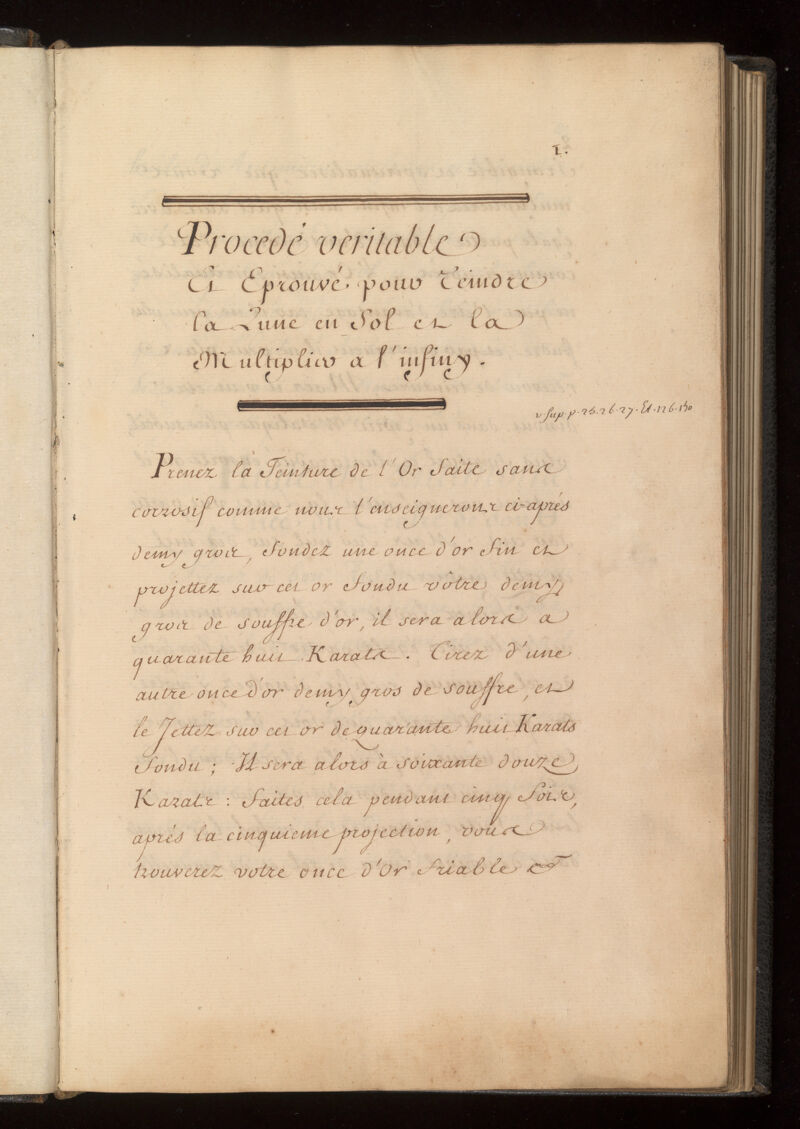 1.
Procedé veritable
Et Eprouvé pour Teindre
la Lune en Sol et la
Multiplier a l'infiny.
v sup p. 25. 26. 27. Et. 126. 130
Prenez la Teinture de l'Or faite sans
corrosif comme nous l'enseignerons ci-aprés
demy gros, fondez une once d'or fin et
projettez sur cet or fondu vôtre demy
gros de souffre d'or, il sera alors a
quarante huit Karats. Tirez d'une
autre once d'or demy gros de souffre, et
le Jettez sur cet or de quarante huit Karats
fondu ; Il sera alors à soixante douze
Karats : faites cela pendant cinq fois,
aprés la cinquieme projection, vous
trouverez votre once d'Or friable et